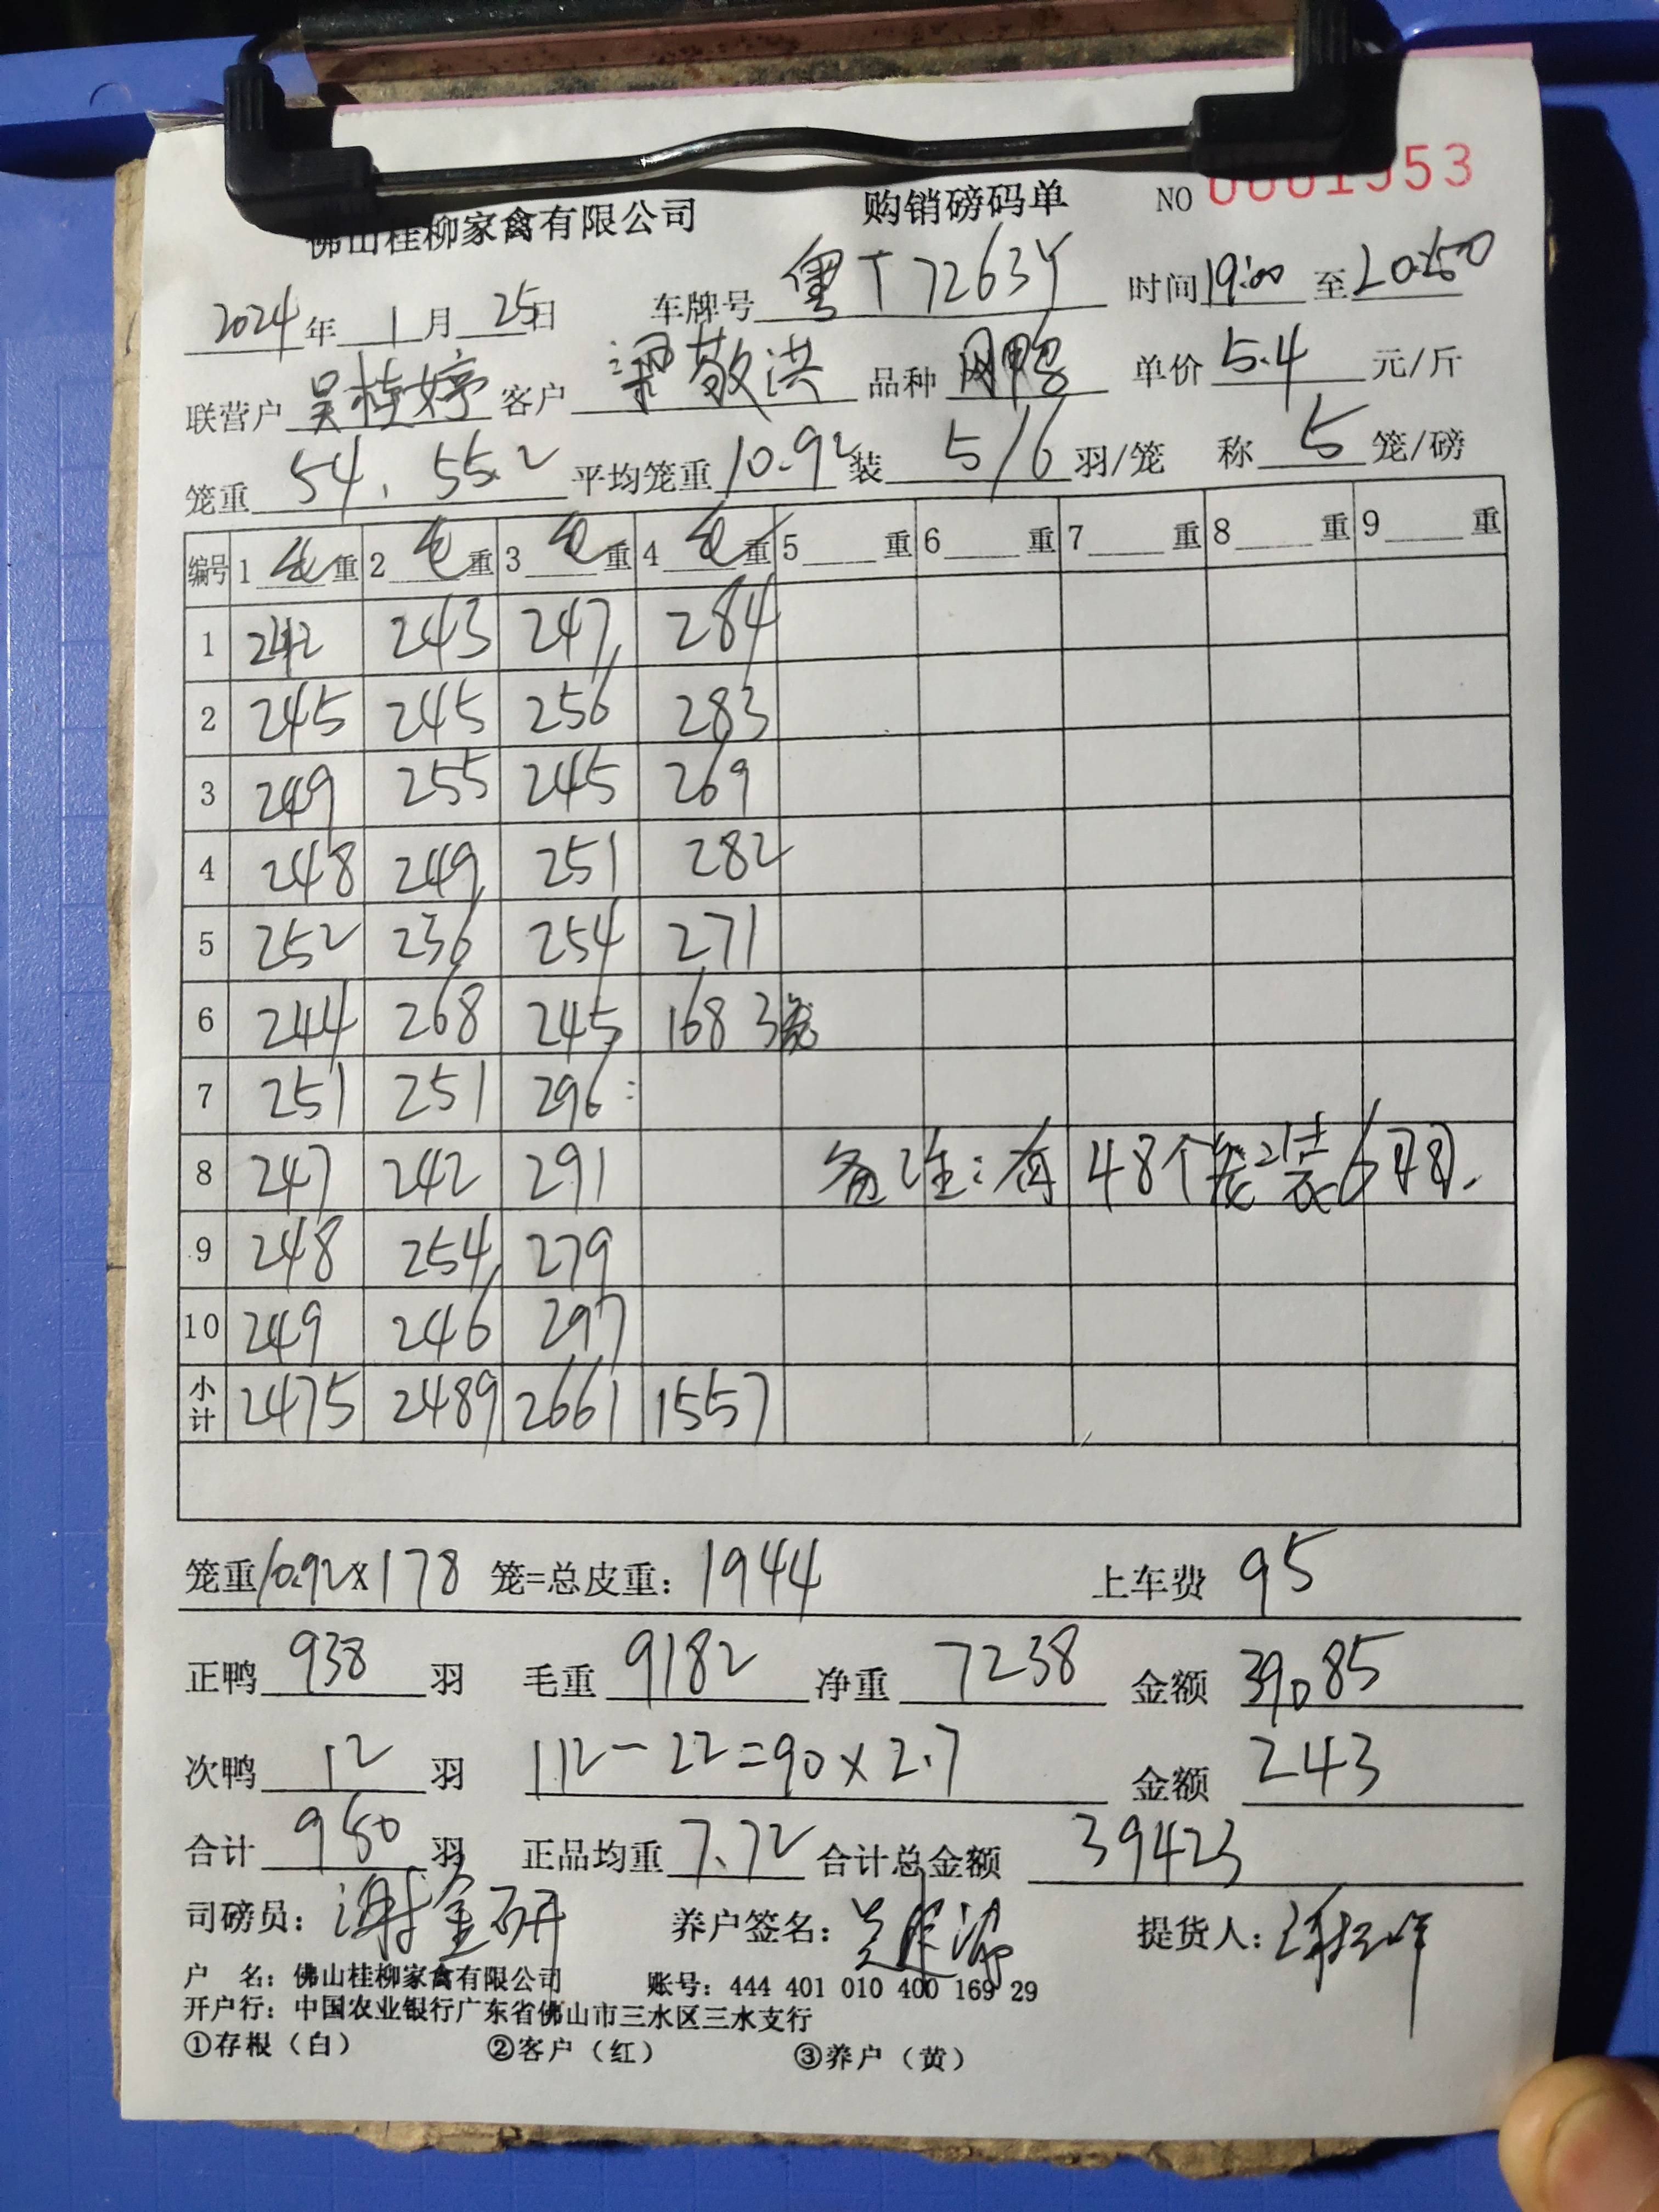 佛山桂柳家禽有限公司 购销磅码单 NO 0001553
2024年 1月 25日 车牌号 粤T7263Y 时间 19:00 至 20:50
联营户 吴桂婷 客户 梁敬洪 品种 网鸭 单价 5.4 元/斤
笼重 54、55.2 平均笼重 10.92 装 5/6 羽/笼 称 5 笼/磅
编号 1 毛重 2 毛重 3 毛重 4 毛重 5 重 6 重 7 重 8 重 9 重
1 242 243 247 284
2 245 245 256 283
3 249 255 245 269
4 248 249 251 282
5 252 236 254 271
6 244 268 245 168 3笼
7 251 251 296
8 247 242 291 备注:有48个笼装6羽.
9 248 254 279
10 249 246 297
小计 2475 2489 2661 1557
笼重 10.92×178 笼=总皮重: 1944 上车费 95
正鸭 938 羽 毛重 9182 净重 7238 金额 39085
次鸭 12 羽 112-22=90×2.7 金额 243
合计 950 羽 正品均重 7.72 合计总金额 39423
司磅员: 谢金研 养户签名: 提货人:
户 名: 佛山桂柳家禽有限公司 账号: 444 401 010 400 169 29
开户行: 中国农业银行广东省佛山市三水区三水支行
①存根(白) ②客户(红) ③养户(黄)